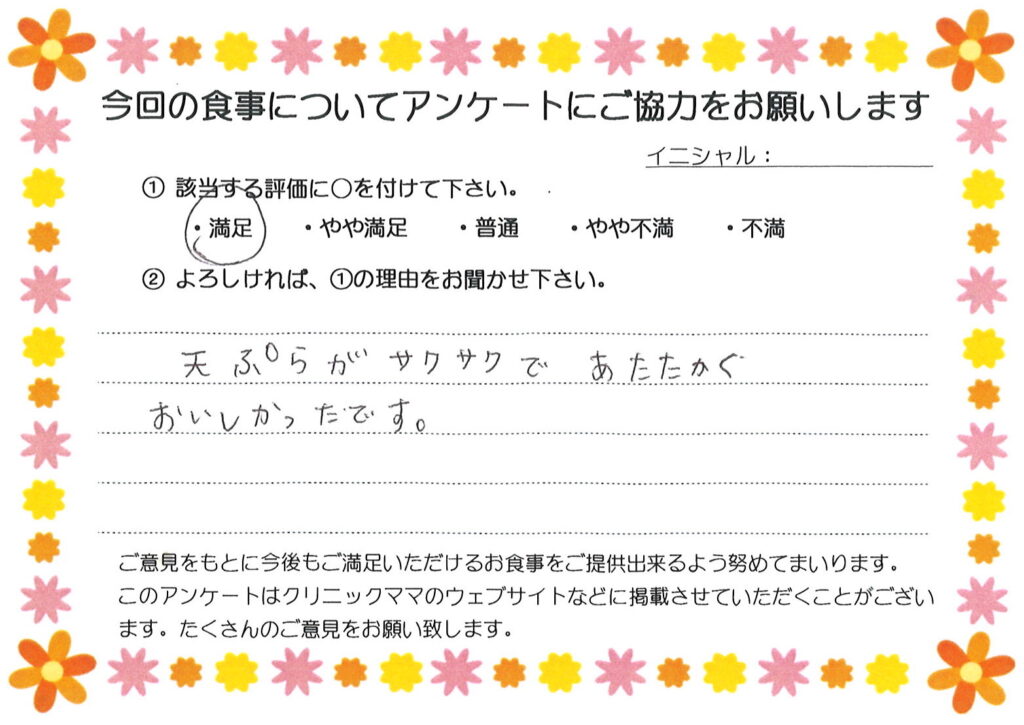 今回の食事についてアンケートにご協力をお願いします
イニシャル：
① 該当する評価に〇を付けて下さい。
・満足 ・やや満足 ・普通 ・やや不満 ・不満
② よろしければ、①の理由をお聞かせ下さい。
天ぷらがサクサクで あたたかく
おいしかったです。
ご意見をもとに今後もご満足いただけるお食事をご提供出来るよう努めてまいります。
このアンケートはクリニックママのウェブサイトなどに掲載させていただくことがござい
ます。たくさんのご意見をお願い致します。